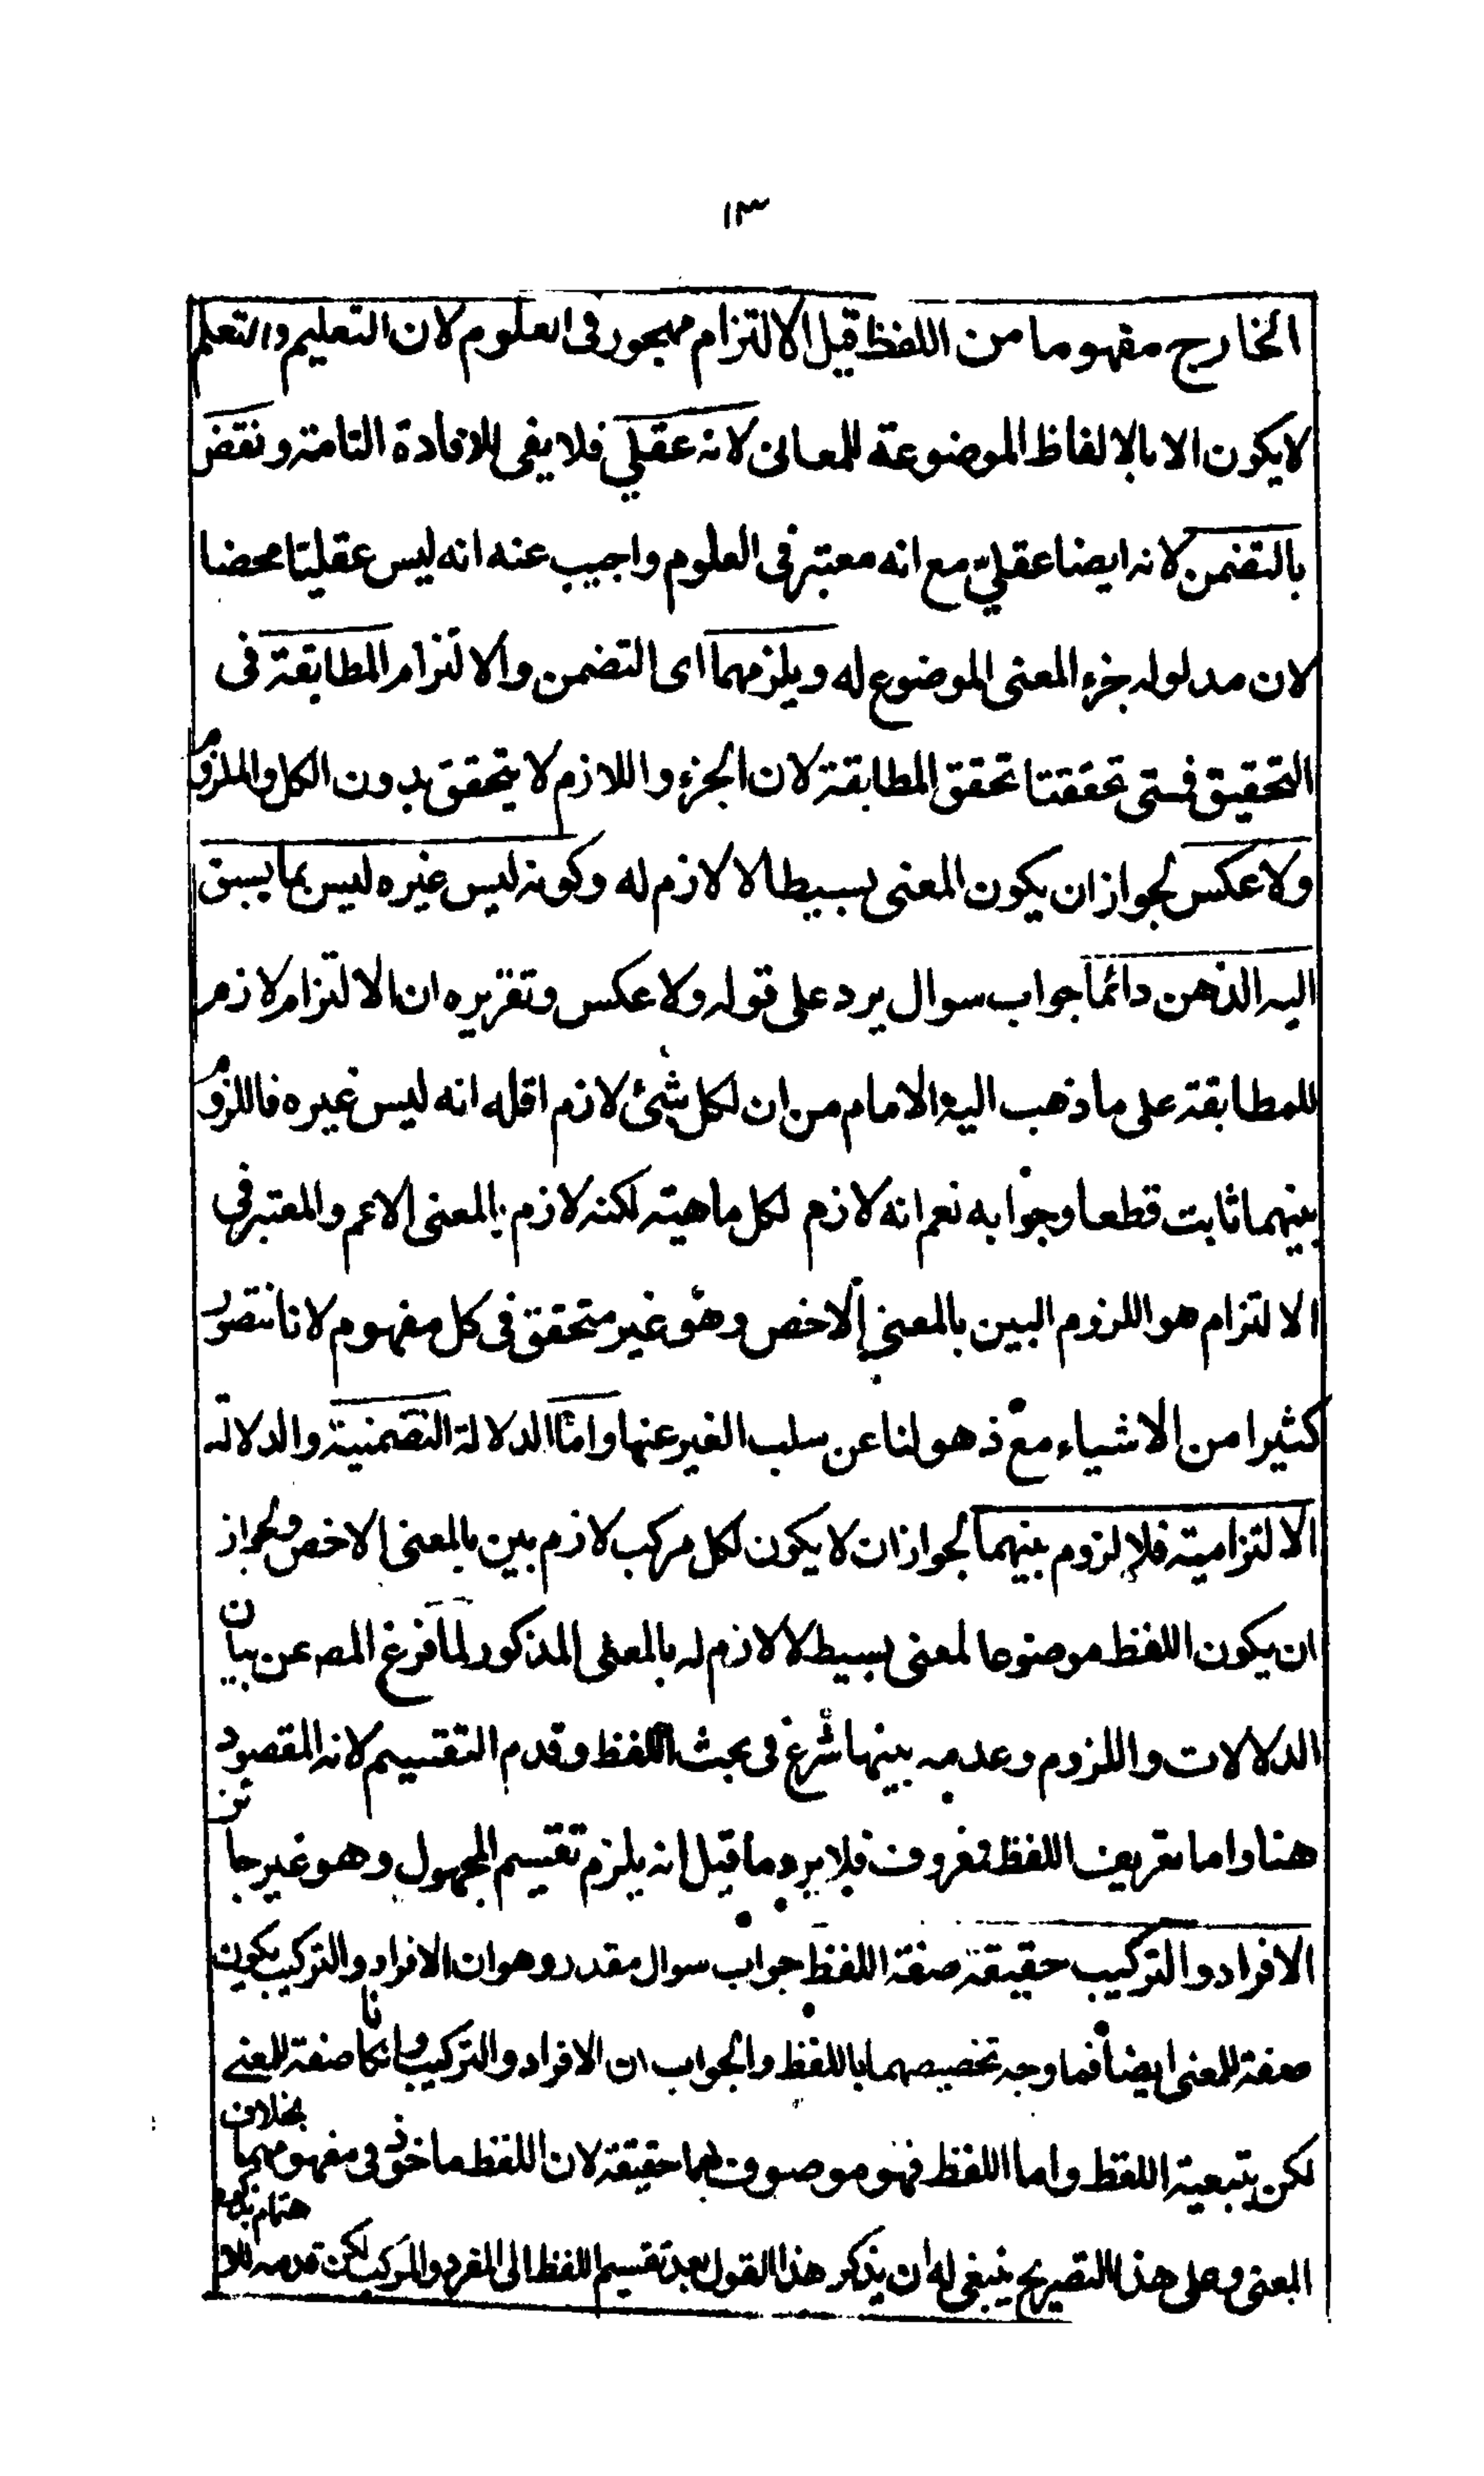 ١٣
الخارج مفهوما من اللفظ قيل الالتزام مهجور فى العلوم لان التعليم والتعلم
لايكون الا بالالفاظ الموضوعة للمعانى لانه عقلي فلا يفى للافادة التامة ونقض
بالتضمن لانه ايضا عقليّ مع انه معتبر فى العلوم واجيب عنه انه ليس عقليّا محضا
لان مدلوله جزء المعنى الموضوع له ويلزمهما اى التضمن والالتزام المطابقة فى
التحقيق فمتى تحققتا تحقق المطابقة لان الجزء واللازم لا يتحقق بدون الكل والملزوم
ولا عكس لجواز ان يكون المعنى بسيطا لا لازم له وكونه ليس غيره ليس بما يسبق
اليه الذهن دائمًا جواب سوال يرد على قوله ولا عكس وتقريره ان الالتزام لازم
للمطابقة على ما ذهب اليه الامام من ان لكل شئ لازم اقله انه ليس غيره فاللزوم
بينهما ثابت قطعا وجوابه نعم انه لازم لكل ماهية لكنه لازم بالمعنى الاعم والمعتبر فى
الالتزام هو اللزوم البين بالمعنى الاخص وهو غير متحقق فى كل مفهوم لانا نتصور
كثيرا من الاشياء مع ذهولنا عن سلب الغير عنها وامّا الدلالة التضمنية والدلالة
الالتزامية فلا لزوم بينهما لجواز ان لا يكون لكل مركب لازم بين بالمعنى الاخص ولجواز
ان يكون اللفظ موضوعا لمعنى بسيط لا لازم له بالمعنى المذكور لما فرغ المص عن بيان
الدلالات واللزوم وعدمه بينها شرع فى بحث اللفظ وقدم التقسيم لانه المقصود
هنا واما تعريف اللفظ فمعروف فلا يرد ما قيل انه يلزم تقسيم المجهول وهو غير جائز
الافراد والتركيب حقيقة صفة اللفظ جواب سوال مقدر وهو ان الافراد والتركيب يكون
صفة للمعنى ايضا فما وجه تخصيصهما باللفظ والجواب ان الافراد والتركيب وان كانا صفة للمعنے
لكن بتبعية اللفظ واما اللفظ فهو موصوف بهما حقيقة لان اللفظ ماخوذ فى مفهومهما بخلاف
المعنى وعلى هذا التصريح ينبغى له ان يذكر هذا القول بعد تقسيم اللفظ الى المفرد والمركب لكن قدمه للاهتمام